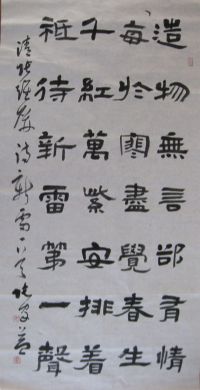 造物無言郤有情
每於寒盡覺春生
千紅萬紫安排着
祗待新雷第一聲
清張維屏詩新雷